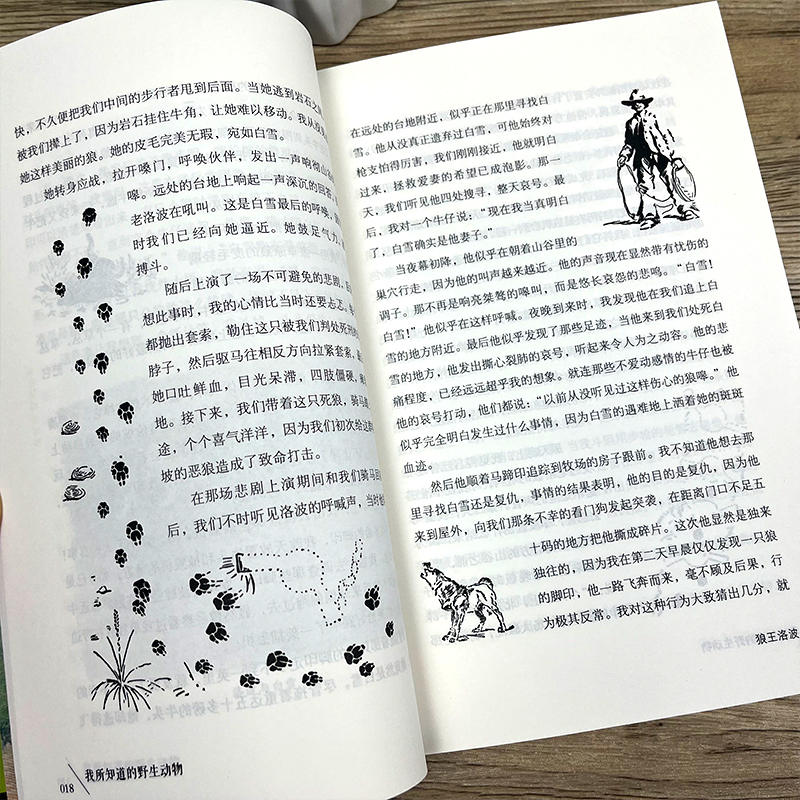 快，不久便把我们中间的步行者甩到后面。当她逃到岩石之
被我们撵上了，因为岩石挂住牛角，让她难以移动。我从没
她这样美丽的狼。她的皮毛完美无瑕，宛如白雪。
她转身应战，拉开嗓门，呼唤伙伴，发出一声响彻山
嗥。远处的台地上响起一声深沉的回答，
老洛波在吼叫。这是白雪最后的呼唤，
时我们已经向她逼近。她鼓足气力，
搏斗。
随后上演了一场不可避免的悲剧，
想此事时，我的心情比当时还要忐忑。
都抛出套索，勒住这只被我们判处死刑
脖子，然后驱马往相反方向拉紧套索，
她口吐鲜血，目光呆滞，四肢僵硬，
地。接下来，我们带着这只死狼，骑马
途，个个喜气洋洋，因为我们初次给这
坡的恶狼造成了致命打击。
在那场悲剧上演期间和我们骑马回
后，我们不时听见洛波的呼喊声，当时他
018
我所知道的野生动物
在远处的台地附近，似乎正在那里寻找白
雪。他从没真正遗弃过白雪，可他始终对
枪支怕得厉害，我们刚刚接近，他就明白
过来，拯救爱妻的希望已成泡影。那一
天，我们听见他四处搜寻，整天哀号。最
后，我对一个牛仔说：“现在我当真明白
了，白雪确实是他妻子。”
当夜幕初降，他似乎在朝着山谷里的
巢穴行走，因为他的叫声越来越近。他的声音现在显然带有忧伤的
调子。那不再是响亮桀骜的嗥叫，而是悠长哀怨的悲鸣。“白雪！
白雪！”他似乎在这样呼喊。夜晚到来时，我发现他在我们追上白
雪的地方附近。最后他似乎发现了那些足迹，当他来到我们处死白
雪的地方，他发出撕心裂肺的哀号，听起来令人为之动容。他的悲
痛程度，已经远远超乎我的想象。就连那些不爱动感情的牛仔也被
他的哀号打动，他们都说：“以前从没听见过这样伤心的狼嗥。”他
似乎完全明白发生过什么事情，因为白雪的遇难地上洒着她的斑斑
血迹。
然后他顺着马蹄印追踪到牧场的房子跟前。我不知道他想去那
里寻找白雪还是复仇，事情的结果表明，他的目的是复仇，因为他
来到屋外，向我们那条不幸的看门狗发起突袭，在距离门口不足五
十码的地方把他撕成碎片。这次他显然是独来
独往的，因为我在第二天早晨仅仅发现一只狼
的脚印，他一路飞奔而来，毫不顾及后果，行
为极其反常。我对这种行为大致猜出几分，就
狼王洛波